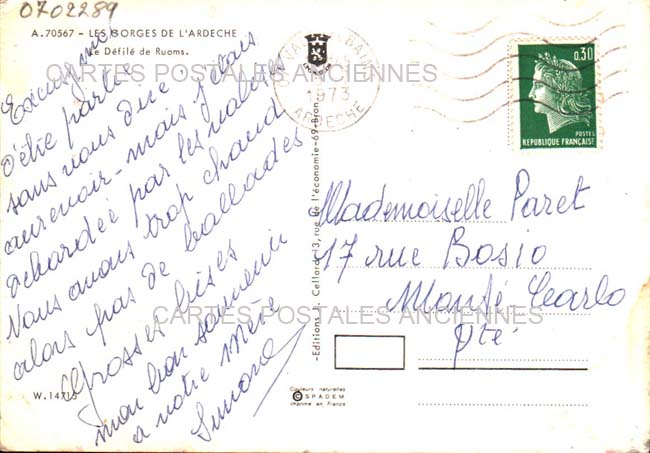 0702289
A.70567 - LES GORGES DE L'ARDECHE
Le Défilé de Ruoms.
CARTES POSTALES ANCIENNES
Excusez moi
d'être partie
sans vous dire
aurevoir - mais j'étais
retardée par les valises
Nous avons trop chaud
alors pas de ballades
Grosses bises
mon bon souvenir
a votre mère
Simone
W.14715
-Editions J. Cellard, 13, rue de l'économie-69-Bron.
LES BAINS
1973
ARDECHE
0,30
POSTES
REPUBLIQUE FRANÇAISE
Mademoiselle Paret
17 rue Bosio
Monté Carlo
Pté
CARTES POSTALES ANCIENNES
Couleurs naturelles
© SPADEM
Imprimé en France